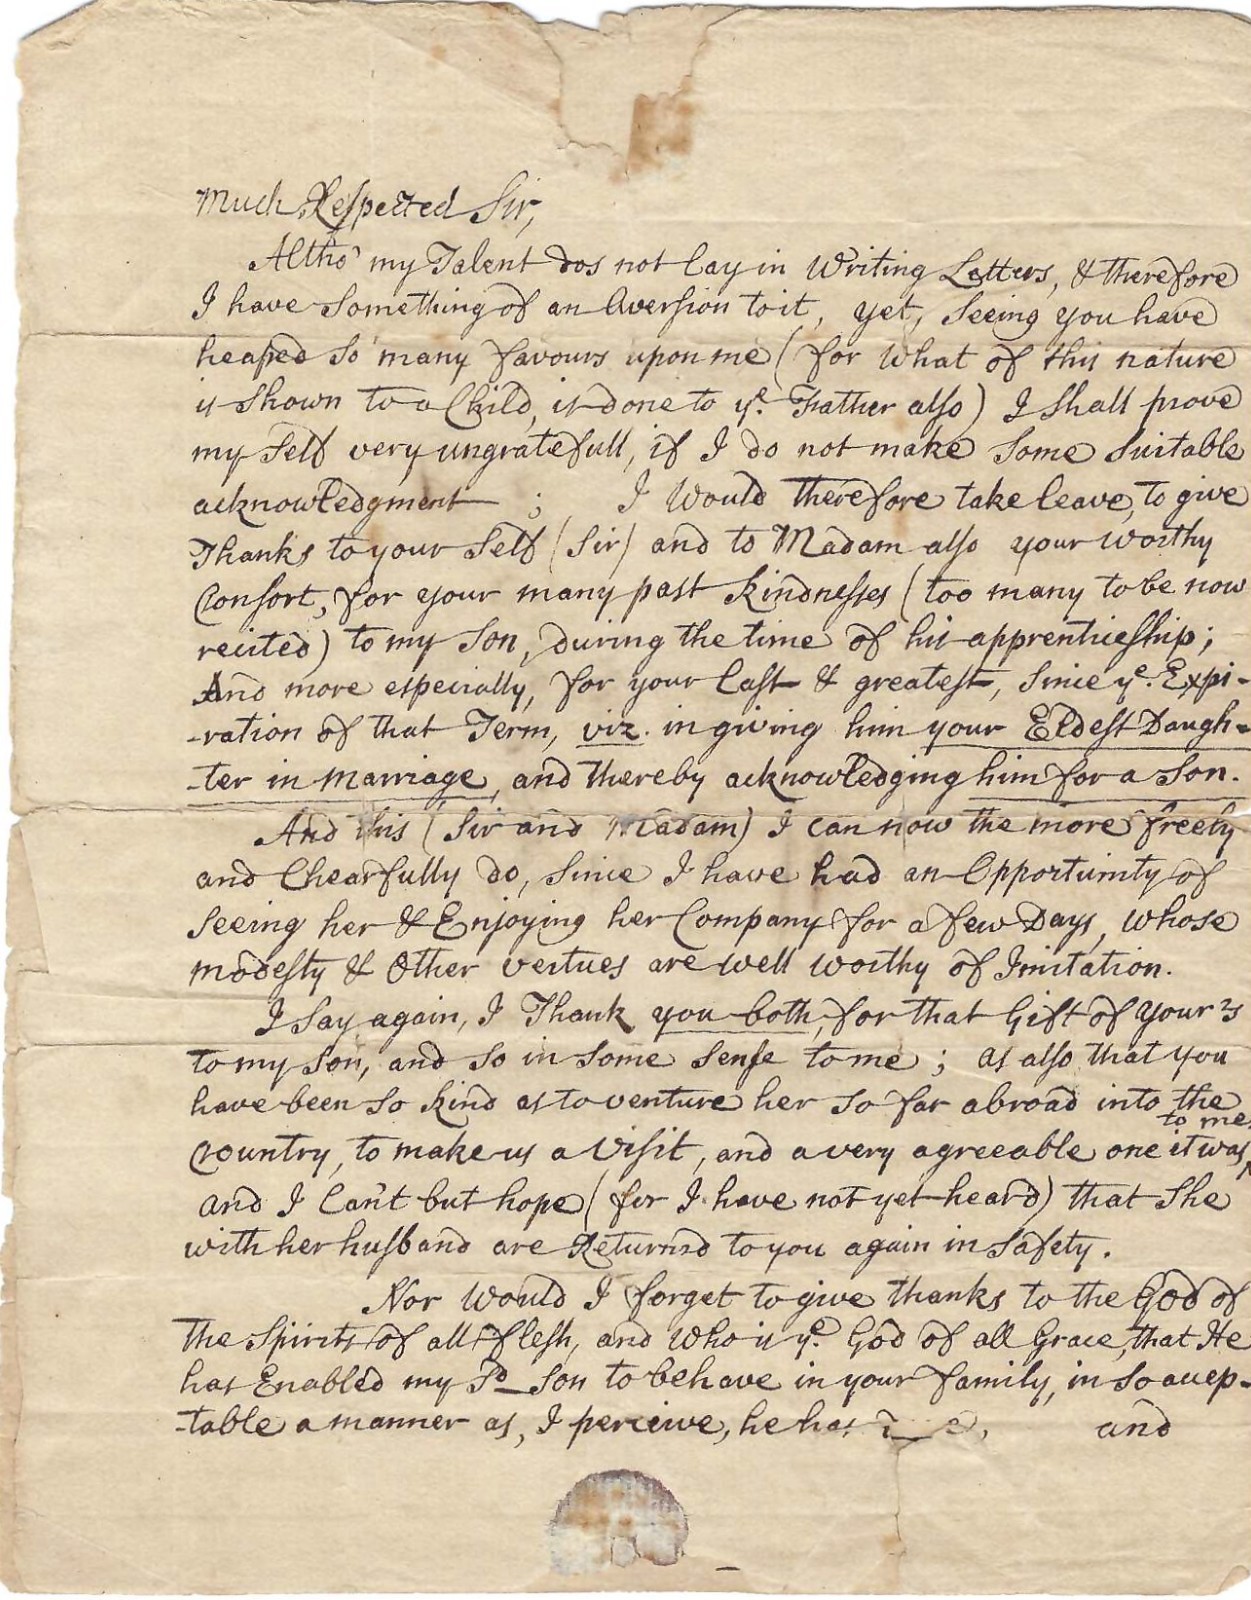 Much Respected Sir,
Altho' my Talent dos not lay in Writing Letters, & therefore
I have something of an Aversion to it, yet, seeing you have
heaped so many favours upon me (for what of this nature
is shown to a Child, is done to yᵉ. Father also) I shall prove
my self very ungratefull, if I do not make some suitable
acknowledgment ; I would therefore take leave, to give
Thanks to your self (Sir) and to Madam also your worthy
Consort, for your many past kindnesses (too many to be now
recited) to my son, during the time of his apprenticeship;
And more especially, for your last & greatest, since yᵉ. Expi-
-ration of that Term, viz. in giving him your Eldest Daugh-
-ter in marriage, and thereby acknowledging him for a son.
And this (Sir and Madam) I can now the more freely
and Chearfully do, since I have had an Opportunity of
seeing her & Enjoying her Company for a few Days, whose
modesty & Other vertues are well worthy of Imitation.
I say again, I Thank you both, for that Gift of your's
to my son, and so in some sense to me ; as also that you
have been so kind as to venture her so far abroad into the
Country, to make us a visit, and a very agreeable one it was ^ to me.
and I Can't but hope (for I have not yet heard) that she
with her husband are Return'd to you again in safety.
Nor would I forget to give thanks to the God of
the spirits of all flesh, and who is yᵉ. God of all Grace, that He
has Enabled my sᵈ son to behave in your family, in so accep-
-table a manner as, I perceive, he has and